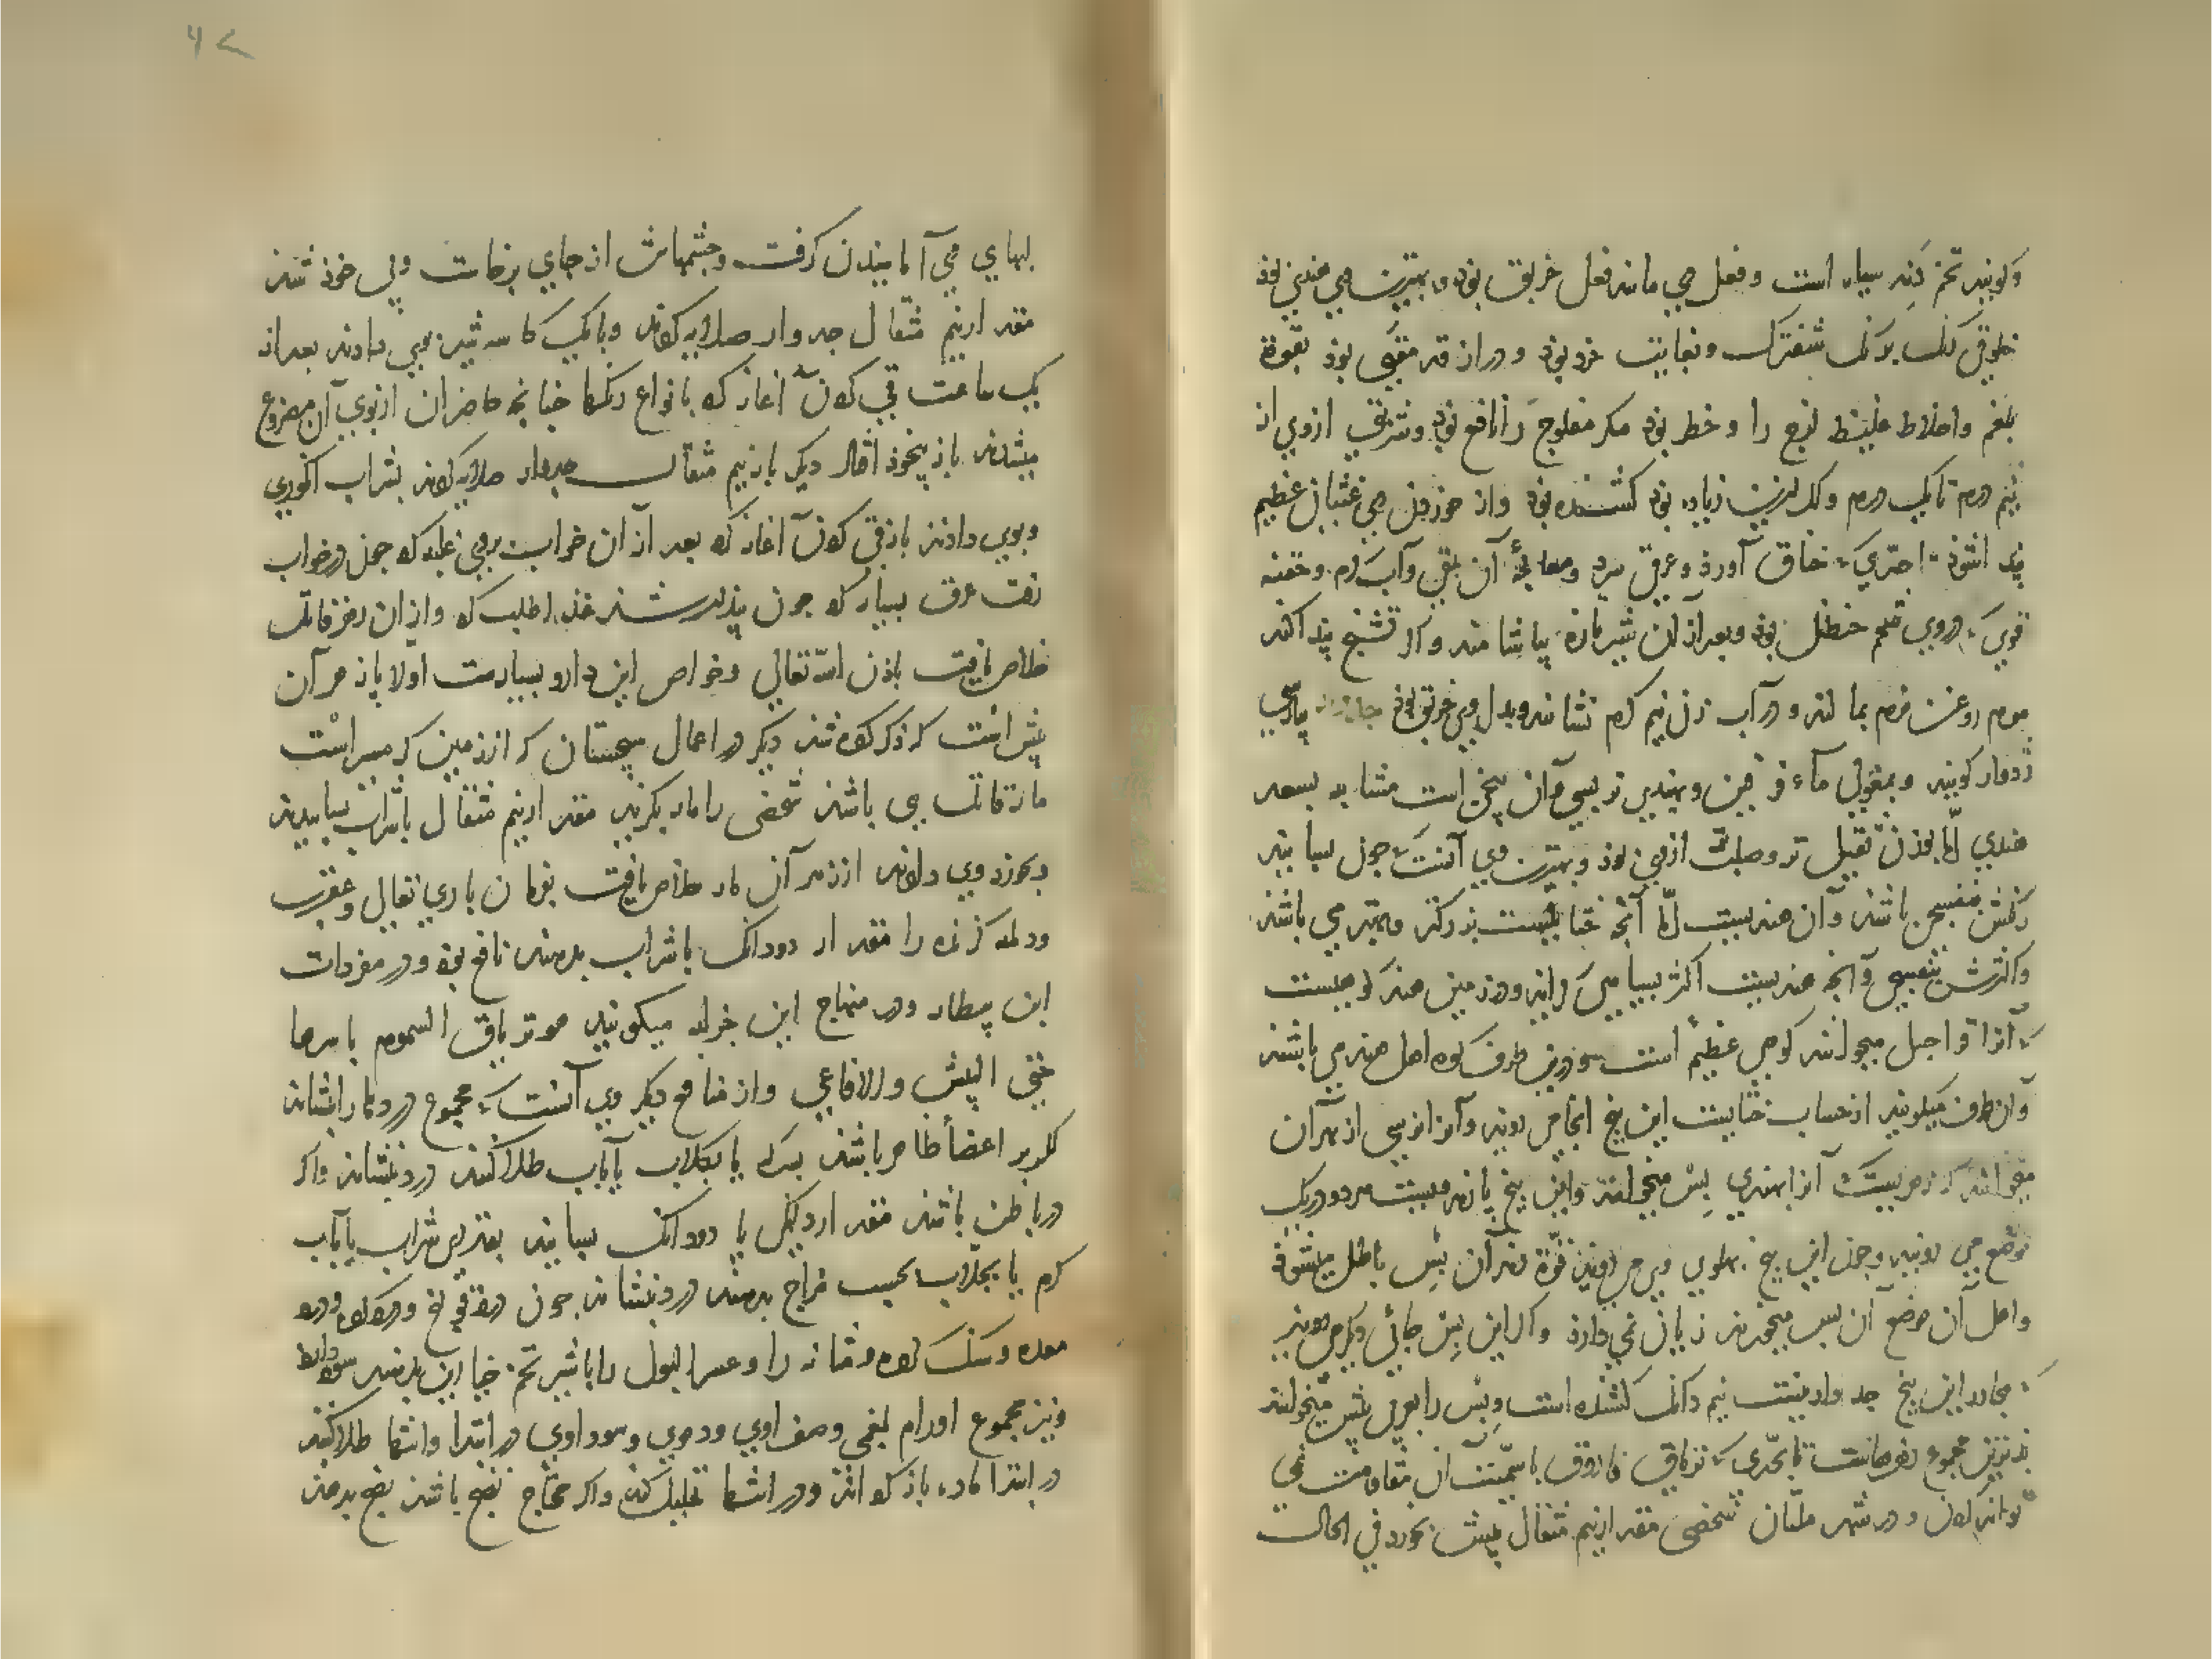 وکویند تخم کنر سیاه است وفعل وی مانند فعل خربق بود وبهترین وی هندی بود
خلوقی رنک برنک شفترک وبغایت خرد بود ودر از قد مقیی بود بقوة
بلغم واخلاط غلیظ لزج را وخطر بود مکر مفلوج را نافع بود وشربتی ازوی از
نیم درم تا یک درم وکر ازین زیاده بود کشنده بود واز خوردن وی غثیان عظیم
پیدا شود خناق آورد وعرق سرد ومعالجۀ آن بقی وآب کرم وحقنه
قوی دروی شحم حنظل بود وبعد از آن شیر تازه بیاشامند واکر تشنج پیدا کند
بموم روغن نرم بمالند ودر آب زن نیم کرم نشانند وبدل وی خربق بود پارسی
زدوار کویند وبقولی ماء فرفین وبهندی نربسی وآن بیخی است مشابه بسعد
هندی اما لون ثقیل تر وصلب تر ازوی بود وبهترین وی آنست که چون بسایند
رنکش بنفسجی باشد وآن هندیست اما آنچه ختاییست بزرکتر وبهتر می باشد
واکثرش بنفسجی وآنچه هندیست اکثر بسیاهی زند ودر زمین هند کوهیست
که آنرا قراجل میخوانند کوهی عظیم است سه روزه طرف کوه اهل هند می باشند
وآن طرف میکویند از حساب ختاییست این بیخ انجا می روید وآنرا نربسی از بهر آن
میخوانند که زهریست که آنرا بهندی بیش میخوانند واین بیخ با زهر بیست هردو در یک
موضع می روید وچون این بیخ پهلوی وی می روید قوة زهر آن بیش باطل میشود
واهل آن موضع آن بیش میخورند زیان نمی دارد واکر این بیش جائی دیکر می روید
که مجاور این بیخ جدوار نیست نیم دانک کشنده است وبیش را بعربی بیش میخوانند
بدترین مجموع زهرهاست تا بحدی که تریاق فاروق با سمیت آن مقاومت نمی
تواند کردن ودر شهر ملتان شخصی مقدار نیم مثقال بیش بخورد فی الحال
لبهای وی آماسیدن کرفت وچشمهاش از جای برخاست وبی خود شد
مقدار نیم مثقال جدوار صلایه کردند وبا یک کاسه شیر بوی دادند بعد از
یک ساعت قی کردن آغاز کرد بانواع رنکها چنانچه حاضران از بوی آن مصروع
میشدند باز بیخود افتاد دیکر باز نیم مثقال جدوار صلایه کردند بشراب انکوری
وبوی دادند باز قی کردن آغاز کرد بعد از آن خواب بروی غلبه کرد چون در خواب
رفت عرق بسیار کرد چون بیدار شد غذا طلب کرد واز آن زهر قاتل
خلاص یافت باذن الله تعالی وخواص این دارو بسیارست اولا پازهر آن
بیش است که ذکر کرده شد دیکر در اعمال سجستان که از زمین کرمسیر است
مارقاتل می باشد شخصی را مار بکزید مقدار نیم مثقال با شراب بساییدند
وبخورد وی دادند از زهر آن مار خلاص یافت بفرمان باری تعالی وعقرب
ودلمه کزیده را مقدار دو دانک با شراب بدهند نافع بود ودر مفردات
ابن بیطار ودر منهاج ابن جزله میکویند هو تریاق السموم باسرها
حتی البیش والافاعی واز منافع دیکر وی آنست که مجموع دردها را بنشاند
اکر بر اعضاء ظاهر باشد بسرکه یا بکلاب یا بآب طلا کنند درد بنشاند واکر
در باطن باشد مقدار دانکی یا دو دانک بسایند بقدری شراب یا بآب
کرم یا بجلاب بحسب مزاج بدهند درد بنشاند چون درد قولنج ودرد کرده ودرد
معده وسنک کرده ومثانه را وعسر البول را با شیر تخم خیارین بدهند سود دارد
ونیز مجموع اورام بلغمی وصفراوی ودموی وسوداوی در ابتدا وانتها طلا کنند
در ابتدا ماده باز کرداند ودر انتها تحلیل کند واکر محتاج نضج باشد نضج بدهد